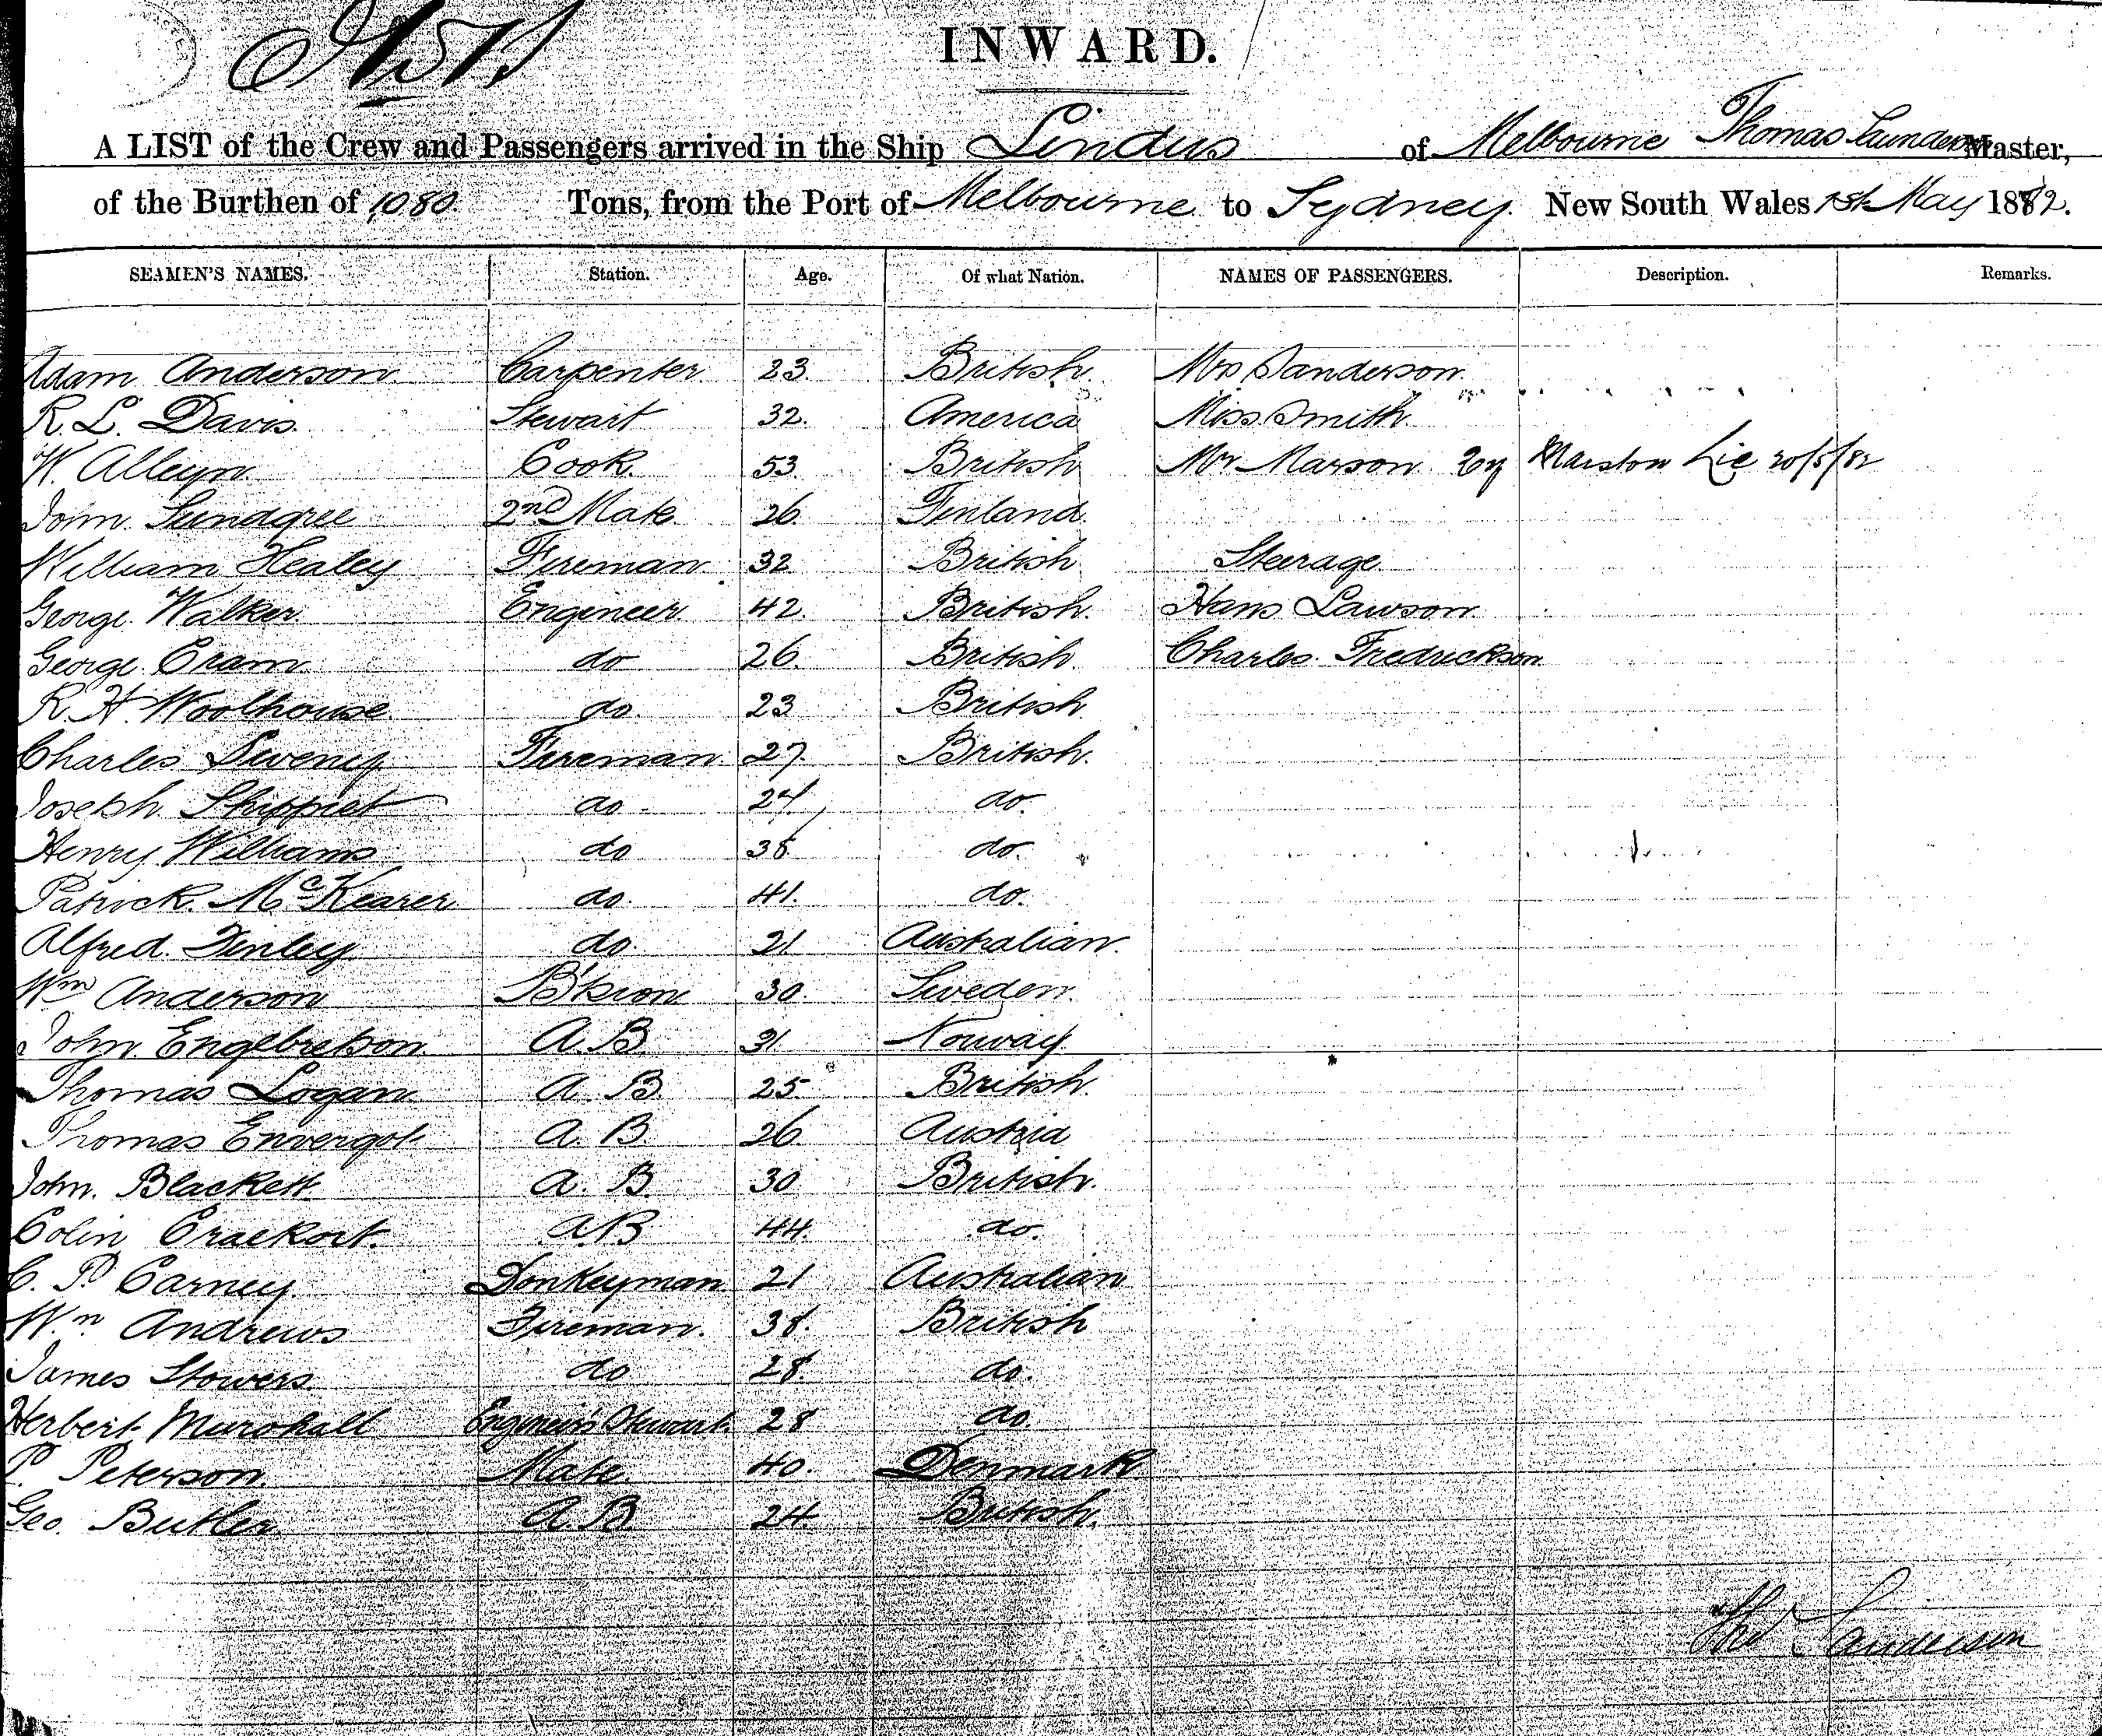 INWARD.
A LIST of the Crew and Passengers arrived in the Ship Lindus of Melbourne Thomas Saunderson Master,
of the Burthen of 1080 Tons, from the Port of Melbourne to Sydney. New South Wales 1st May 1882.
SEAMEN'S NAMES. Station. Age. Of what Nation. NAMES OF PASSENGERS. Description. Remarks.
Adam Anderson Carpenter 23. British. Mrs Sanderson.
R. L. Davis. Stewart 32. America Miss Smith.
W. Alleyn. Cook. 53. British Mr Marson Marston Lie 20/5/82
John Sundgree 2nd Mate. 26. Finland.
William Healey Fireman. 32 British Steerage.
George Walker. Engineer. 42. British. Hans Lawson.
George Cram do 26. British. Charles Fredrickson
R. H. Woolhouse. do. 23 British.
Charles Sweeny Fireman 27. British.
Joseph Shippiet do 24 do.
Henry Williams do 38 do.
Patrick McKearer do. 41. do.
Alfred Finley do. 21. Australian.
Wm Anderson 30. Sweden.
John Engebretson A. B. 31. Norway.
Thomas Logan A. B. 25. British.
Thomas Envergot A. B. 26. Austria
John. Blackett. A. B. 30 British.
Colin Crackort. A B 44. do.
C. P. Carney Donkeyman 21 Australian
Wm Andrews Fireman. 38. British
James Stowers. do 28. do.
Herbert Murshall Engineer's Stewart. 28 do.
P. Peterson. Mate. 40. Denmark
Geo. Butler A. B. 24. British.
Thos Sanderson